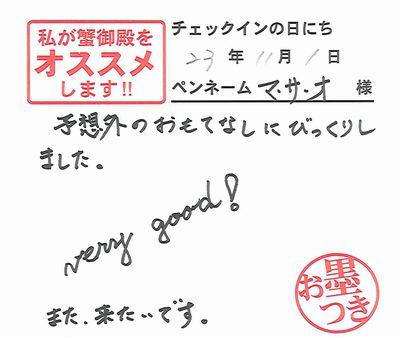 私が蟹御殿を
オススメ
します!!
チェックインの日にち
23年11月1日
ペンネーム マ・サ・オ 様
予想外のおもてなしにびっくりし
ました。
very good!
また、来たいです。
お墨
つき